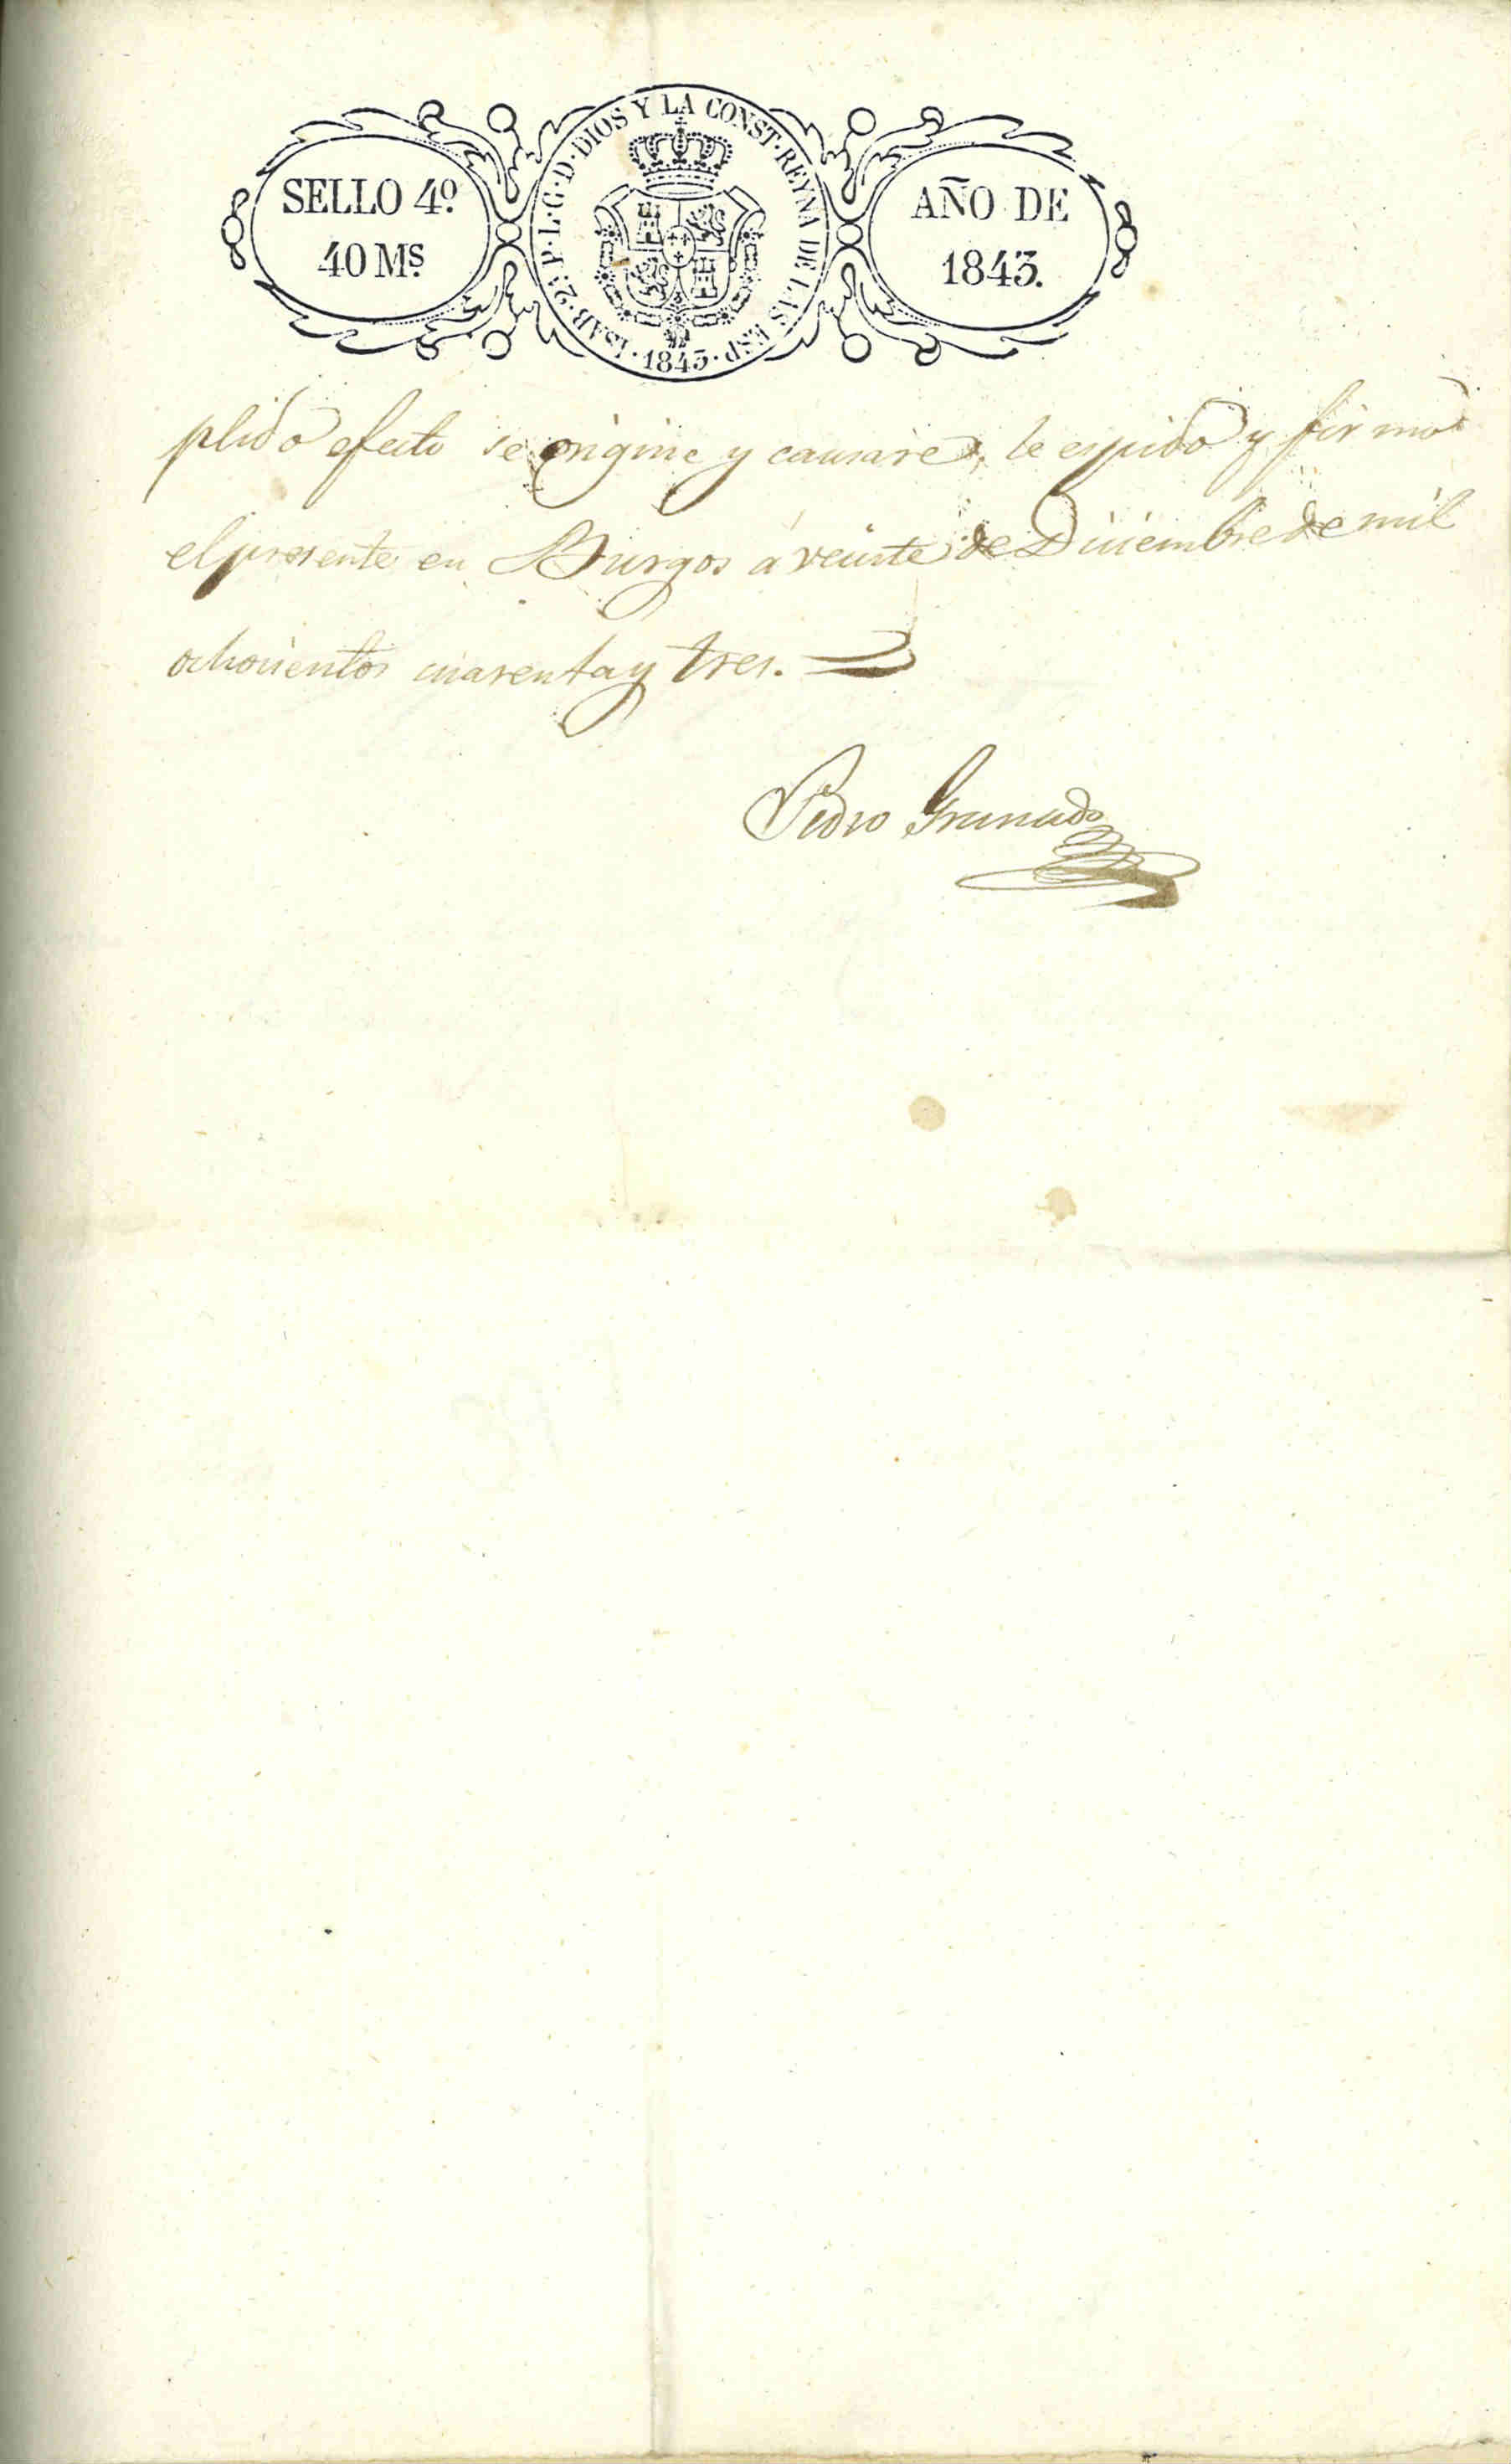 SELLO 4º.
40 Mˢ.
ISAB. 2ª. P. L. G. D. DIOS Y LA CONST. REYNA DE LAS ESP. 1843.
AÑO DE
1843.
plido efecto se origine y causare, le espido y firmo
el presente en Burgos á veinte de Diciembre de mil
ochocientos cuarenta y tres.
Pedro Granado